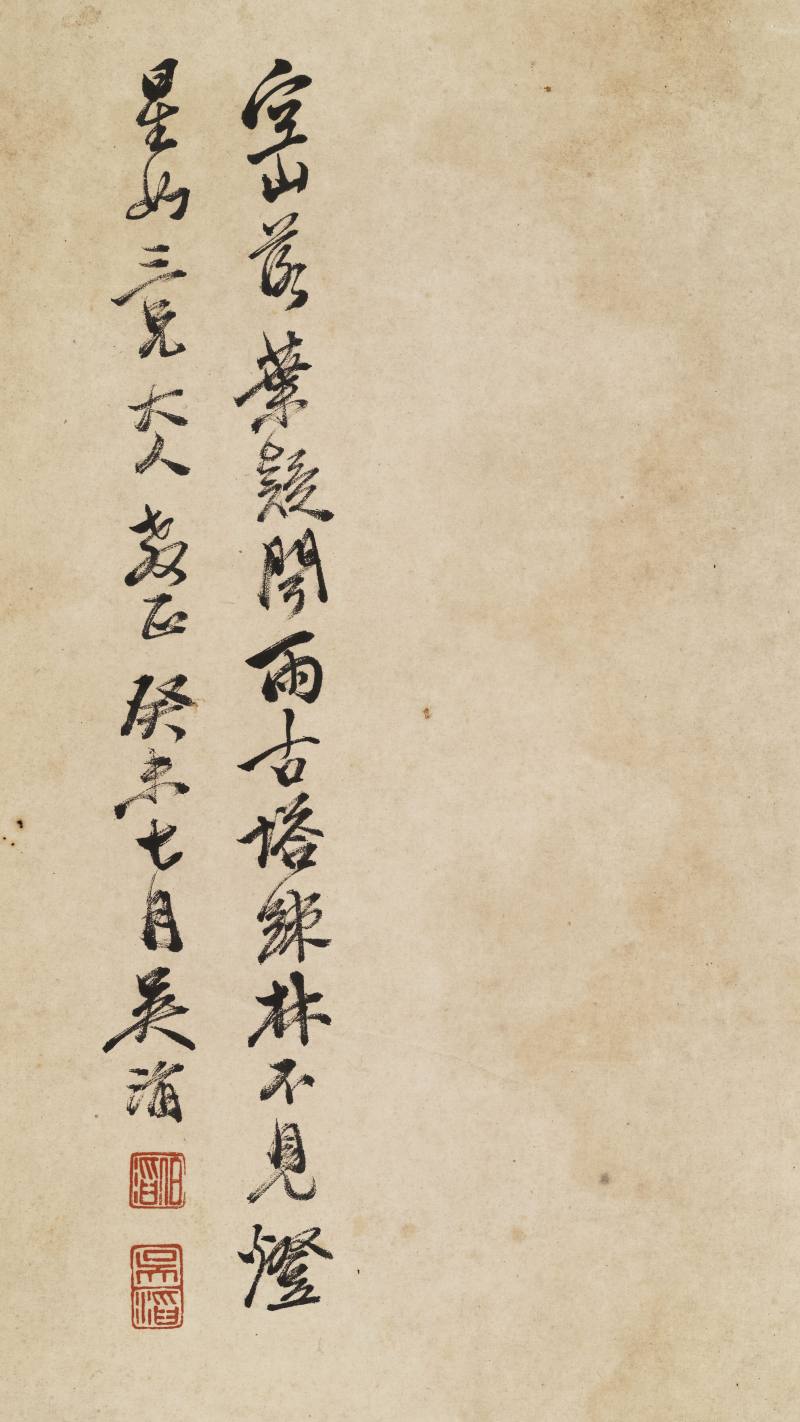 空山落葉疑聞雨古塔疎林不見燈
星如三兄大人教正癸未七月吳滔
伯滔
吳滔